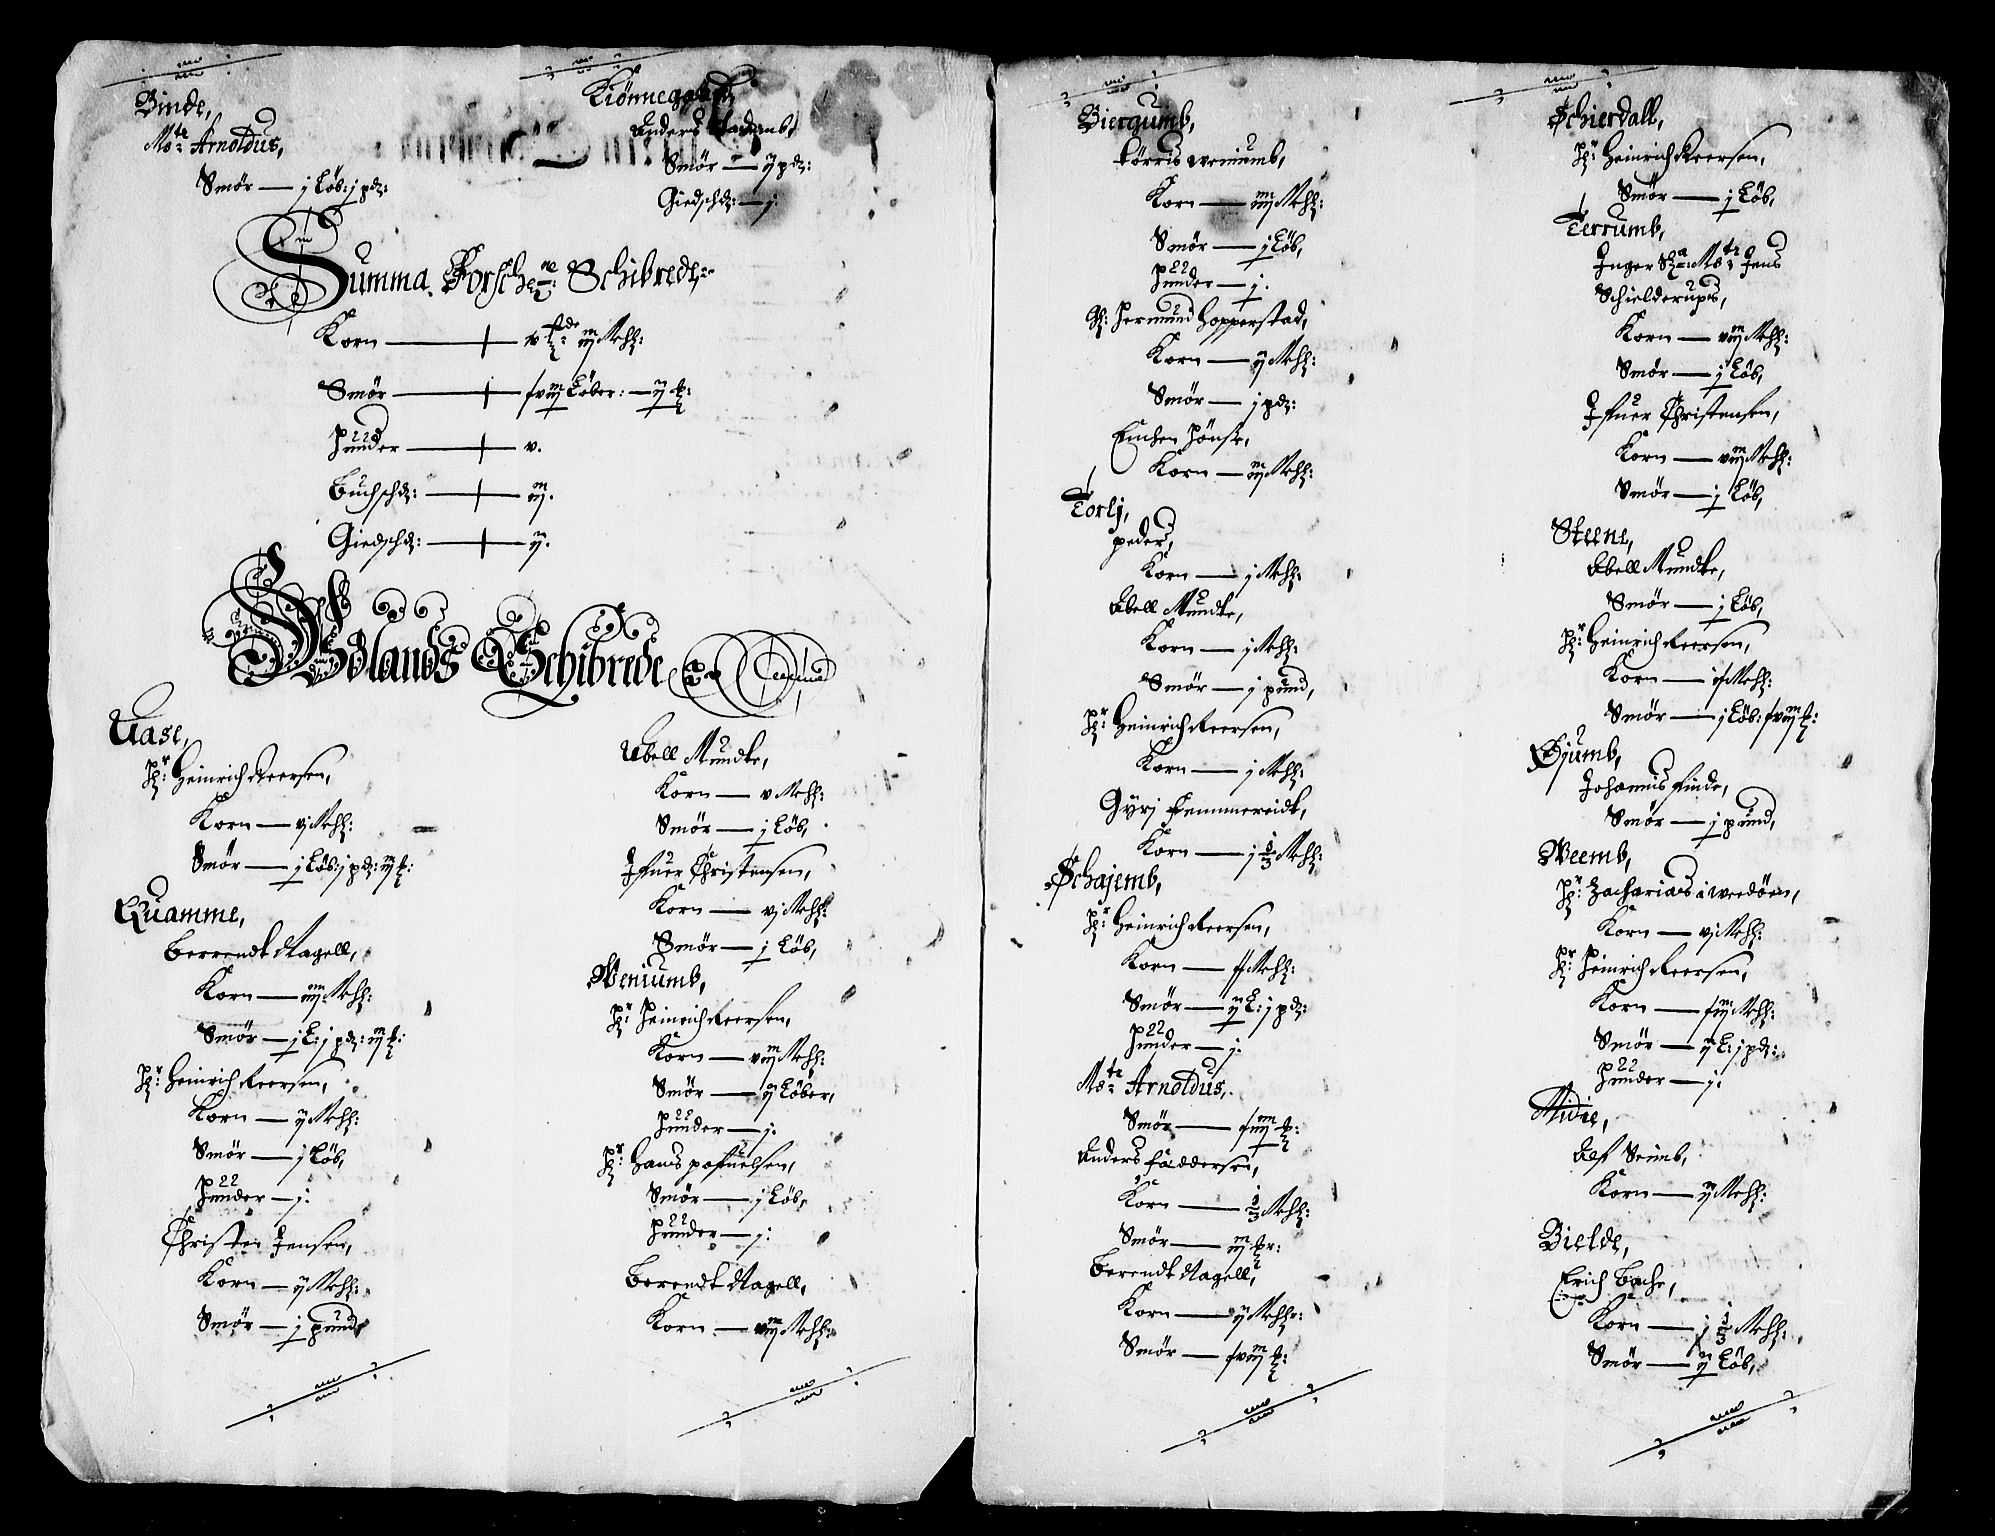 Binde,
Mo: Arnoldus,
Smör — j Löb: j pd:
Kiönnegaard
Anders
Smör — ij pd:
Giedschd: — j:
Summa. Forsch: Schibrede:
Korn — v mehl:
Smör — Löber: — ij
Hunder — v.
Buchschd: — iij.
Giedschd: — ij.
Schibrede
Uase,
Hr: Heinrich Reersen,
Korn — vj Mehl:
Smör — j Löb: j pd: iij
Quamme,
Berrendt Nagell,
Korn — iiij Mehl:
Smör — j L: j pd: iij
Hr: Heinrich Reersen,
Korn — ij Mehl:
Smör — j Löb,
Hunder — j:
Christen Jensen,
Korn — ij Mehl:
Smör — j pund,
Abell Mundte,
Korn — v Mehl:
Smör — j Löb,
Ifuer Christensen,
Korn — vj Mehl:
Smör — j Löb,
Weniumb,
Hr: Heinrich Reersen,
Korn — viij Mehl:
Smör — ij Löber,
Hunder — j:
Hr: Hans pofuelsen,
Smör — j Löb,
Hunder — j:
Berendt Nagell,
Korn — viij Mehl:
Biergumb,
Törris weniumb,
Korn — iiij Mehl:
Smör — j Löb,
Hunder — j.
Hr: Jermund Hopperstad,
Korn — ij Mehl:
Smör — j pd:
Euchen Hönse,
Korn — iij Mehl:
Torlj,
peder,
Korn — j Mehl:
Abell Mundte,
Korn — j Mehl:
Smör — j pund,
Hr: Heinrich Reersen,
Korn — j Mehl:
Gyrj Femmereide,
Korn — j 1/3 Mehl:
Schajemb,
Hr: Heinrich Reersen,
Korn — Mehl:
Smör — ij L: j pd:
Hunder — j:
Mo: Arnoldus,
Smör —
Anders Faddersen,
Korn — 1/3 Mehl:
Smör — iij
Berendt Nagell,
Korn — ij Mehl:
Smör —
Schierdall,
Hr: Heinrich Reersen,
Smör — j Löb,
Terrumb,
Inger Sl: Mo: Jens
Schielderups,
Korn — viij Mehl:
Smör — j Löb,
Ifuer Christensen,
Korn — viij Mehl:
Smör — j Löb,
Steene,
Abell Mundte,
Smör — j Löb,
Hr: Heinrich Reersen,
Korn — Mehl:
Smör — j Löb:
Öjumb,
Johannis Finde,
Smör — j pund,
Weemb,
Hr: Zacharias i weedöen,
Korn — vj Mehl:
Hr: Heinrich Reersen,
Korn — Mehl:
Smör — ij L: j pd:
Hunder — j:
Midie,
Alf Seimb,
Korn — ij Mehl:
Bielde,
Erich Bache,
Korn — j 1/3 Mehl:
Smör — ij Löb,